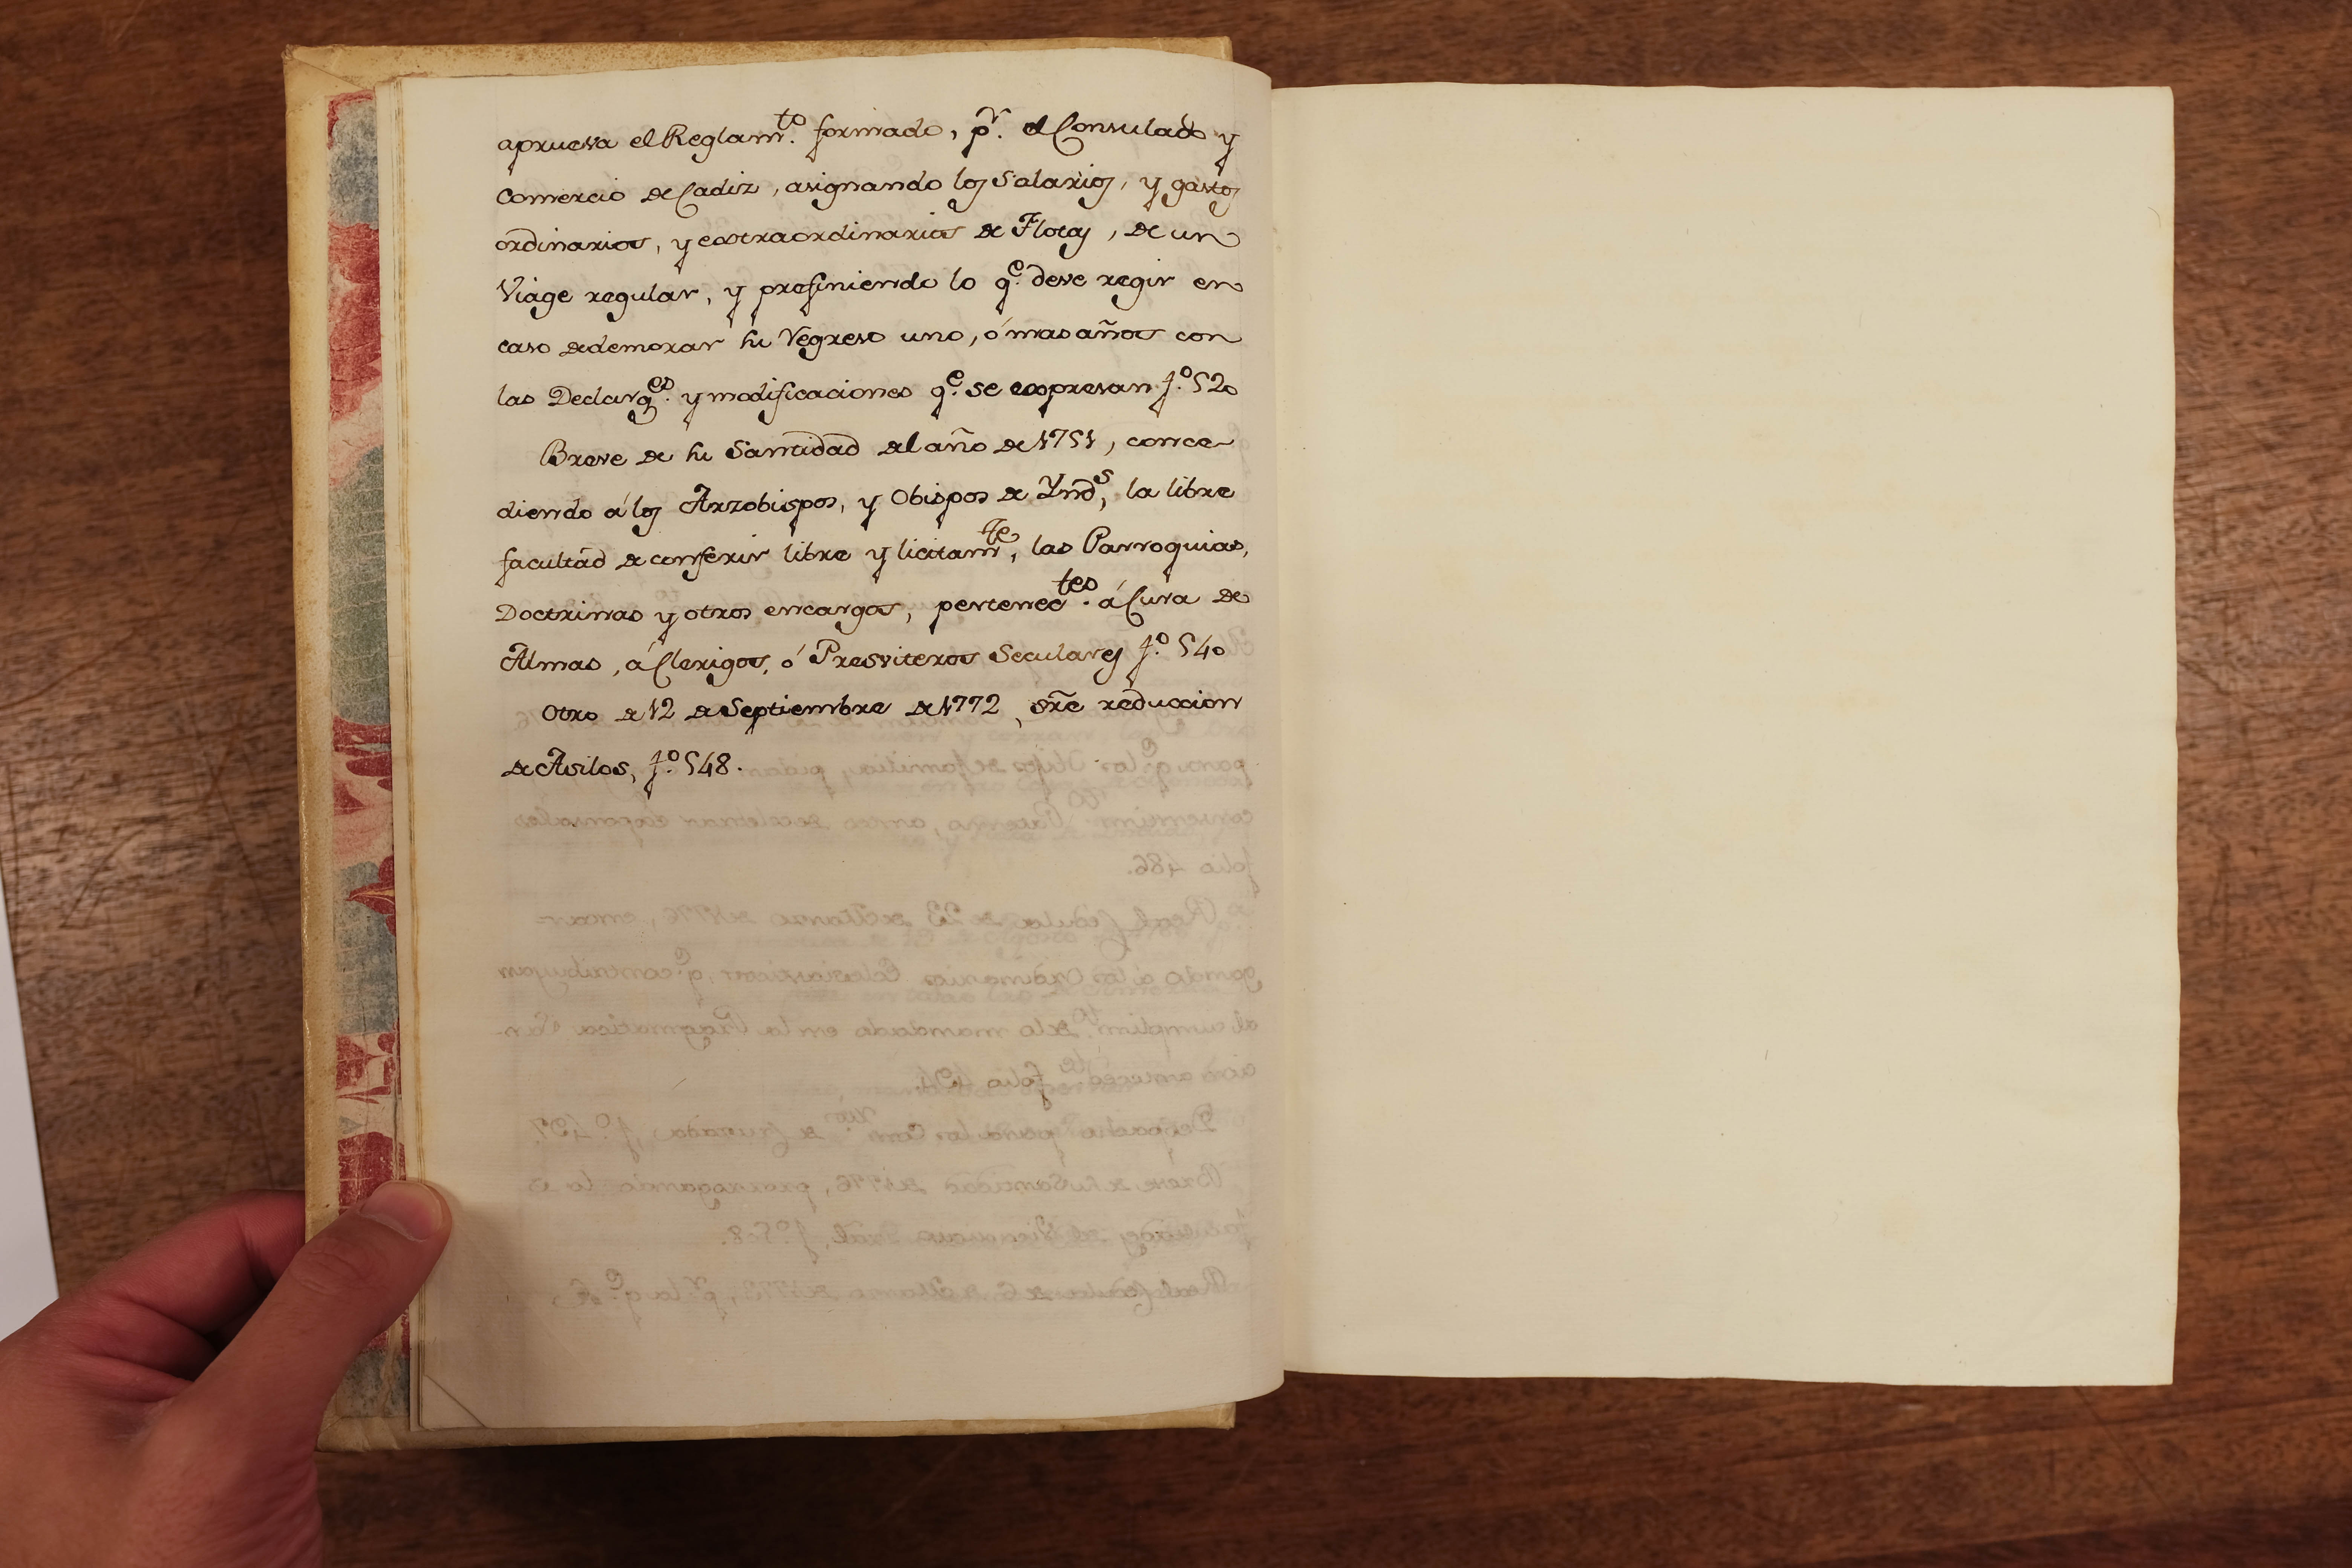 aprueva el Reglam.to formado, p.r el Consulado y
Comercio de Cadiz, asignando los Salarios, y gastos
ordinarios, y extraordinarios de Flotas, de un
Viage regular, y prefiniendo lo q.e deve regir en
caso de demorar su Regreso uno, ó mas años con
las Declarq.es y modificaciones q.e se expresan f.o 520
Breve de su Santidad del año de 1751, conce-
diendo á los Arzobispos, y Obispos de Ynd.s, la libre
facultad de conferir libre y licitam.te, las Parroquias,
Doctrinas y otros encargos, pertenec.tes á Cura de
Almas, á Clerigos, ó Presviteros Seculares f.o 540
Otro de 12 de Septiembre de 1772, sr̃e reduccion
de Asilos, f.o 548.